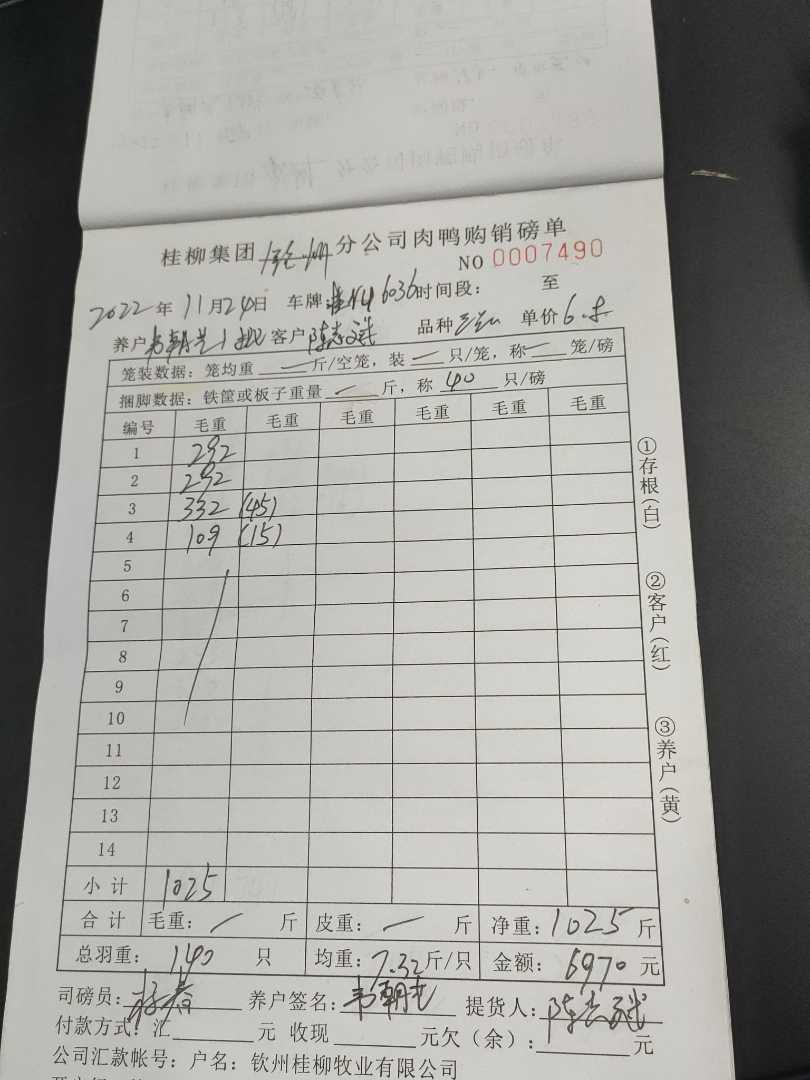 桂柳集团 钦州 分公司肉鸭购销磅单
NO 0007490
2022年11月24日 车牌: 6036 时间段: 至
养户 韦朝 客户 陈志 品种 单价 6.8
笼装数据：笼均重 — 斤/空笼，装 — 只/笼，称 — 笼/磅
捆脚数据：铁筐或板子重量 — 斤，称 40 只/磅
编号 毛重 毛重 毛重 毛重 毛重 毛重
1 292
2 292
3 332 (45)
4 109 (15)
5
6
7
8
9
10
11
12
13
14
小计 1025
合计 毛重： 斤 皮重： 斤 净重：1025 斤
总羽重：140 只 均重：7.32 斤/只 金额：6970 元
司磅员： 养户签名：韦朝 提货人：陈志
付款方式：汇 元 收现 元欠（余）： 元
公司汇款帐号：户名：钦州桂柳牧业有限公司
①存根(白)
②客户(红)
③养户(黄)